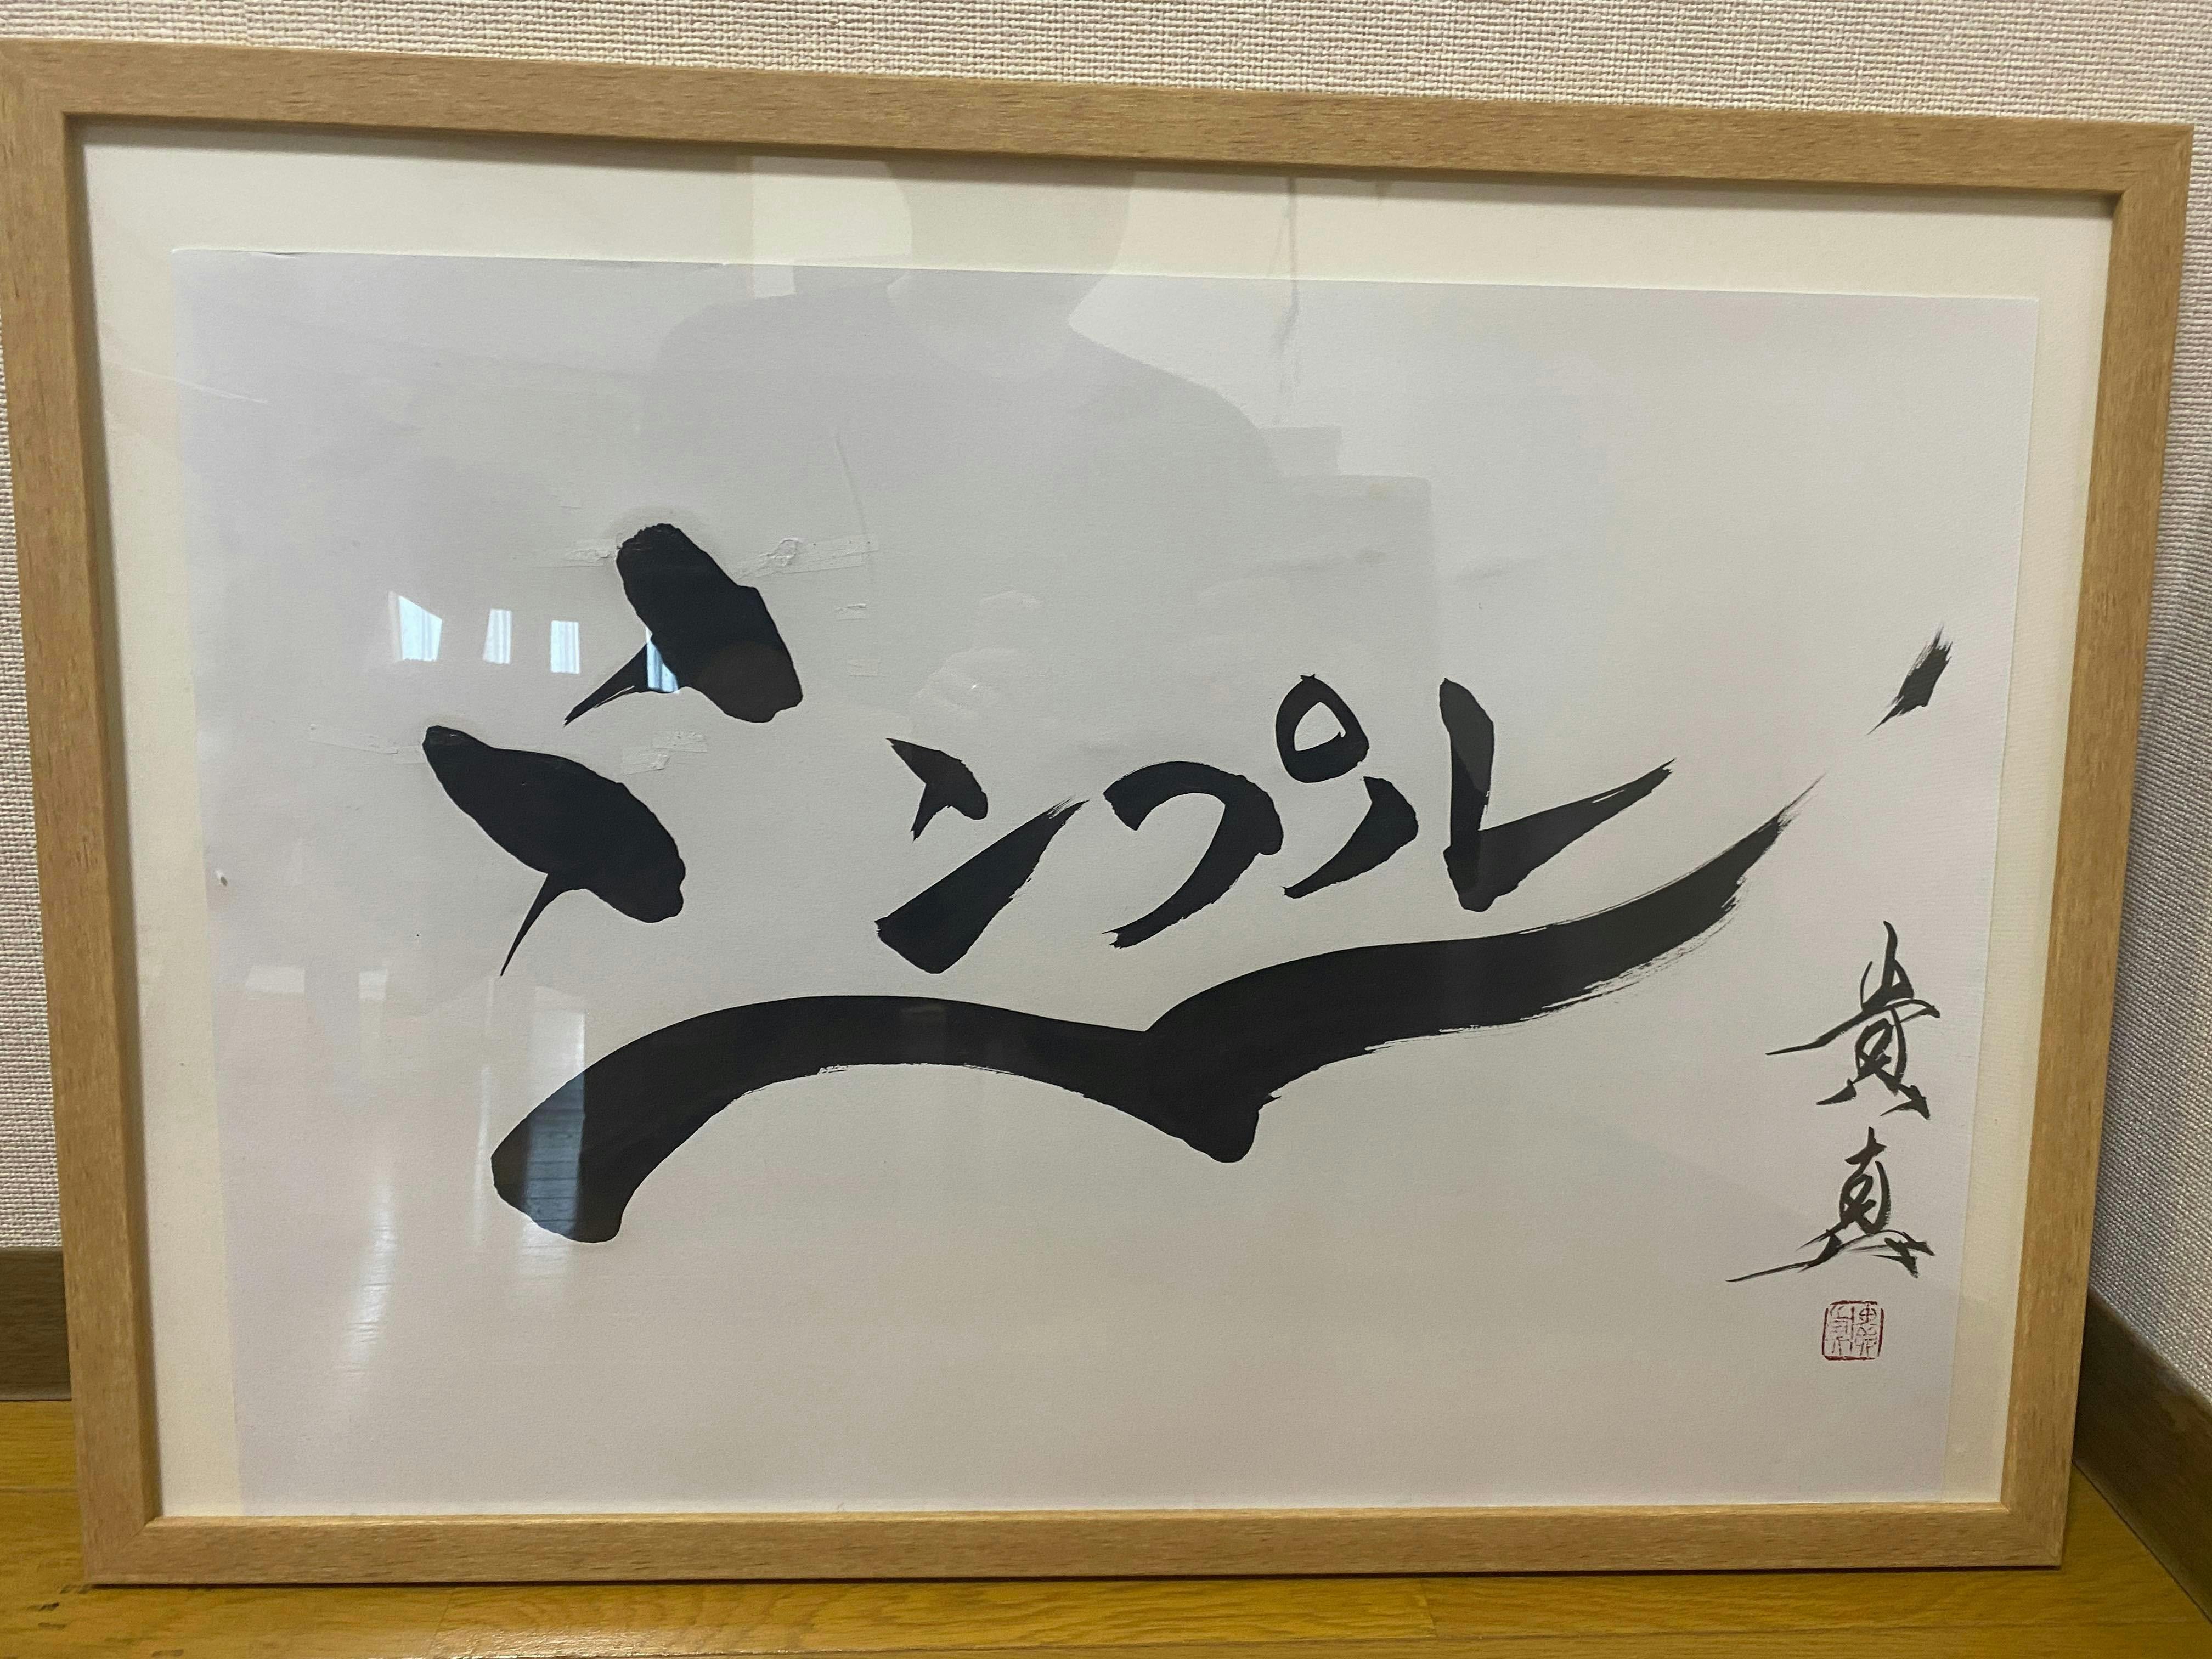 シンプル
貴真